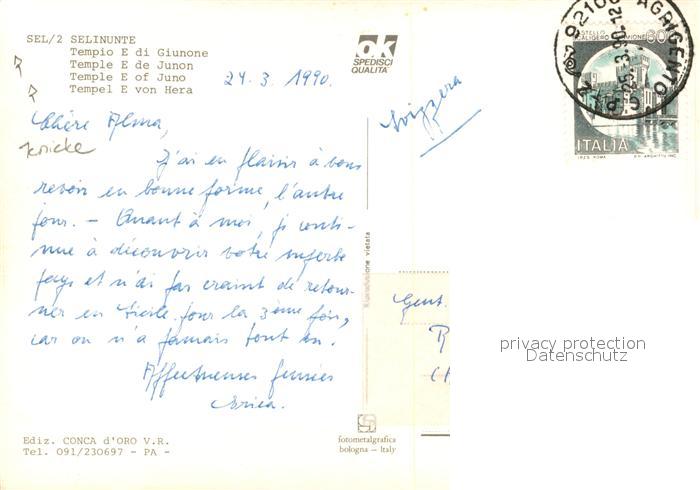 SEL/2 SELINUNTE
Tempio E di Giunone
Temple E de Junon
Temple E of Juno
Tempel E von Hera
ok
SPEDISCI
QUALITA'
24.3.1990.
Chère Alma,
J'ai eu plaisir à vous
revoir en bonne forme, l'autre
jour. - Quant à moi, je conti-
nue à découvrir votre superbe
pays et n'ai pas craint de retour-
ner en Sicile pour la 3ème fois,
car on n'a jamais tout vu.
Affectueuses pensées
Erica.
Ediz. CONCA d'ORO V.R.
Tel. 091/230697 - PA -
Riproduzione vietata
fotometalgrafica
bologna - Italy
Svizzera
Gent.
R
CASTELLO
SCALIGERO SIRMIONE
ITALIA
I.P.Z.S. ROMA
AGRIGENTO
25.3.90-12
privacy protection
Datenschutz